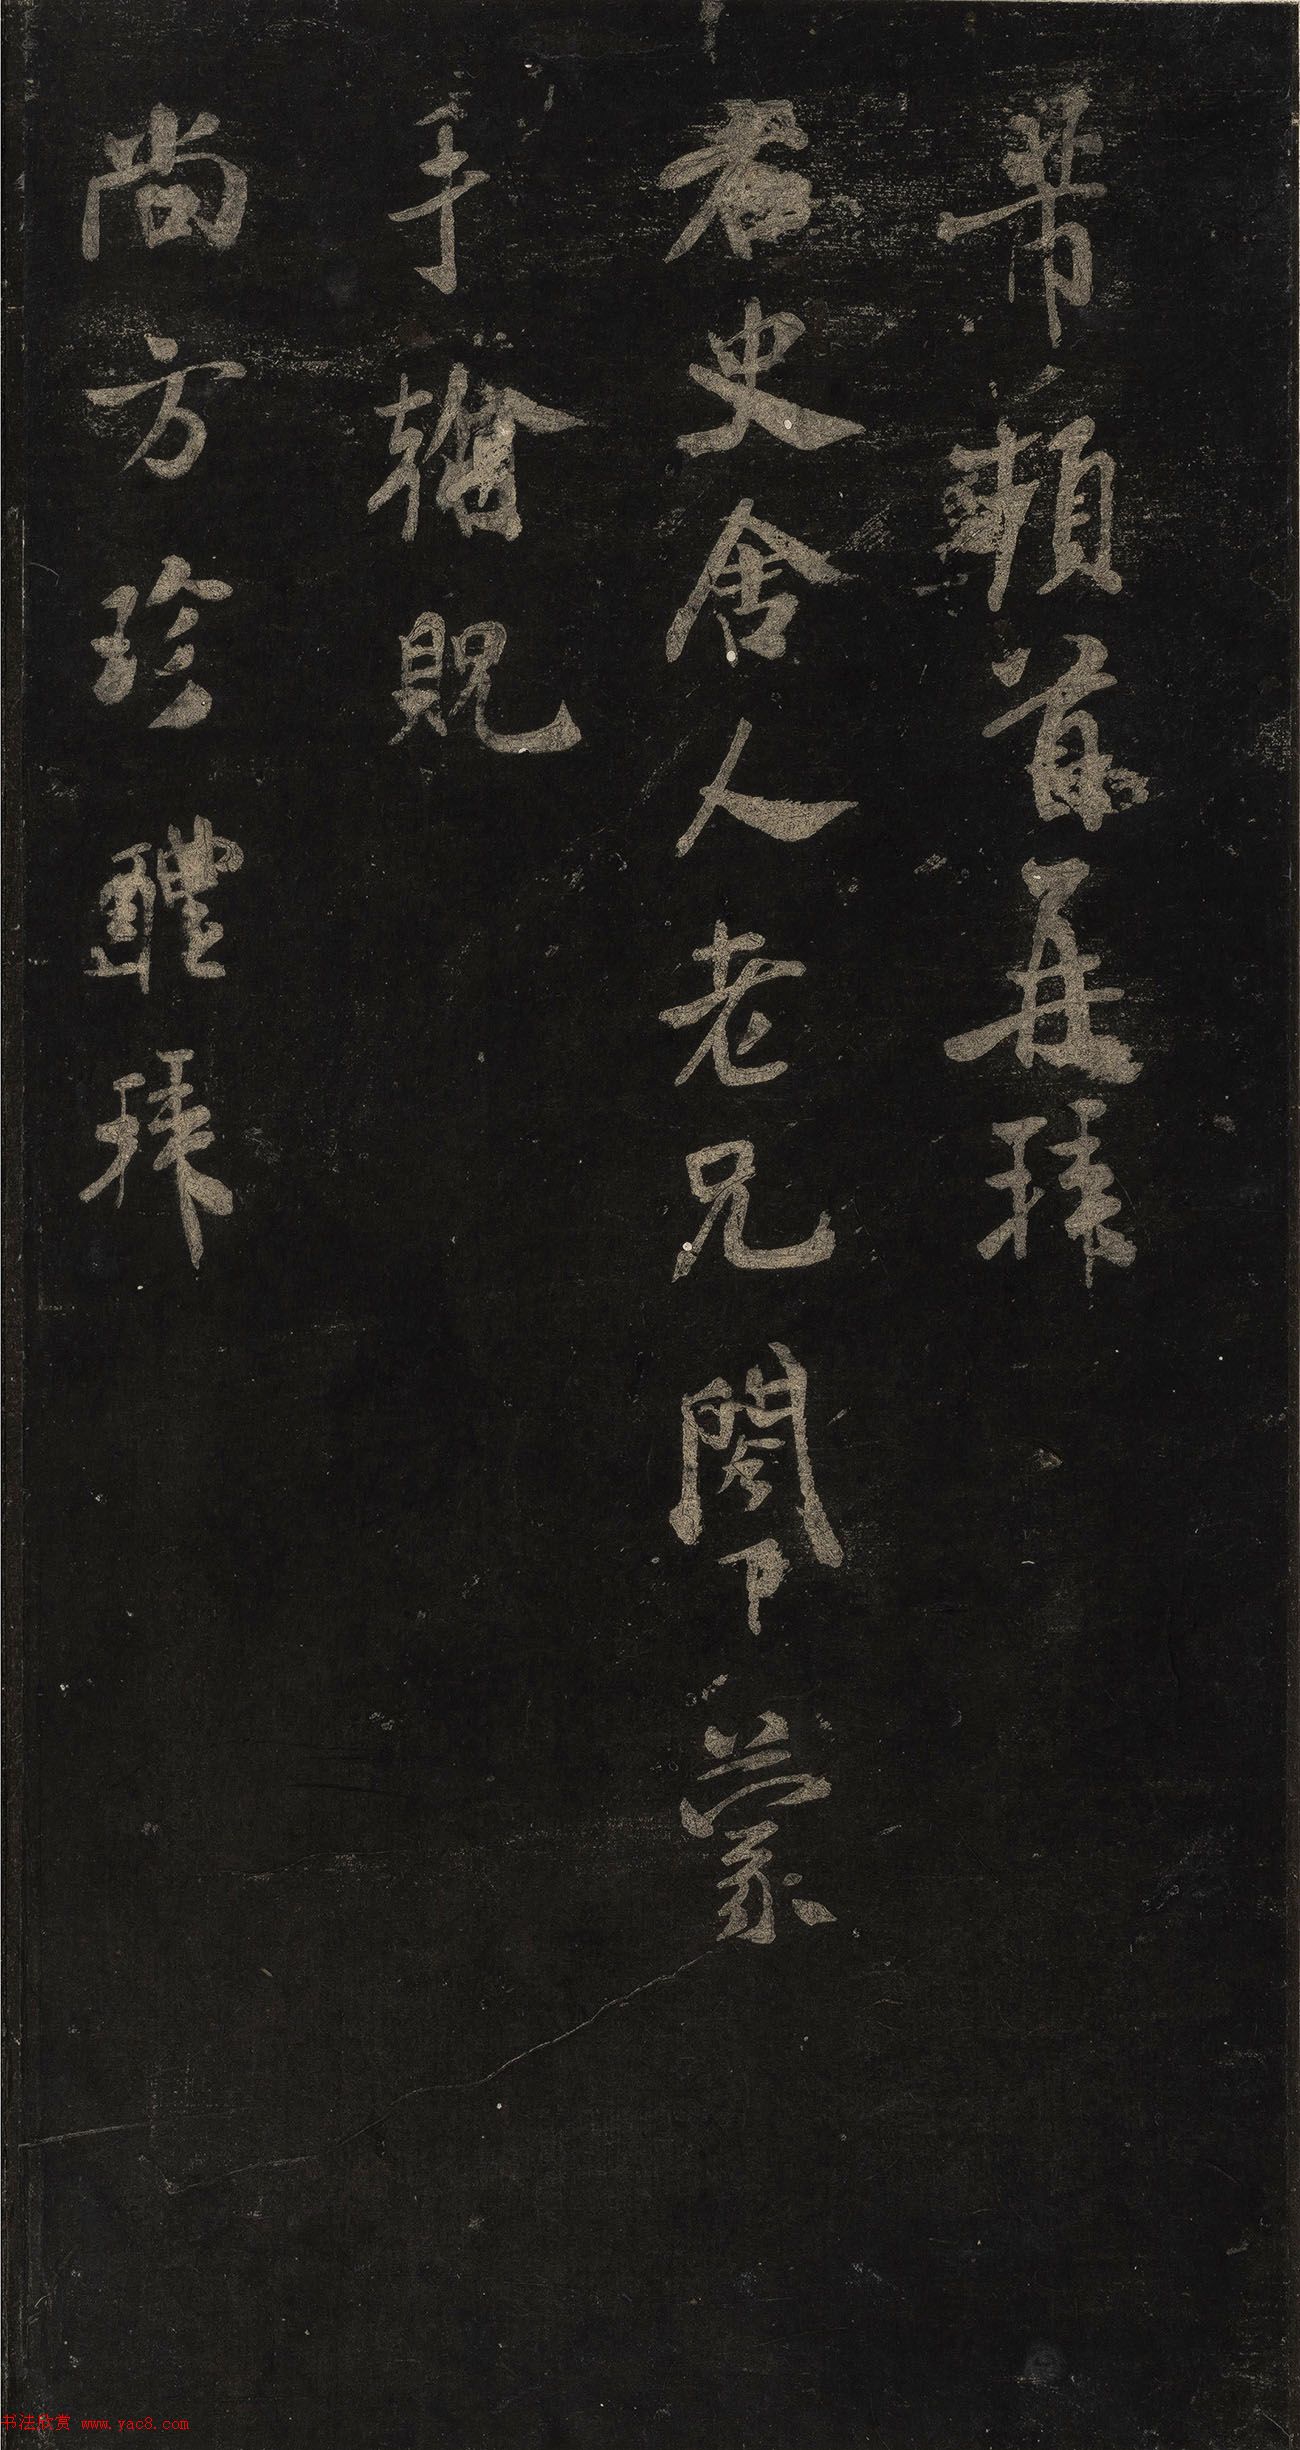 芾頓首再拜
右史舍人老兄閤下蒙
手翰貺
尚方珍醴拜
书法欣赏 www.yac8.com